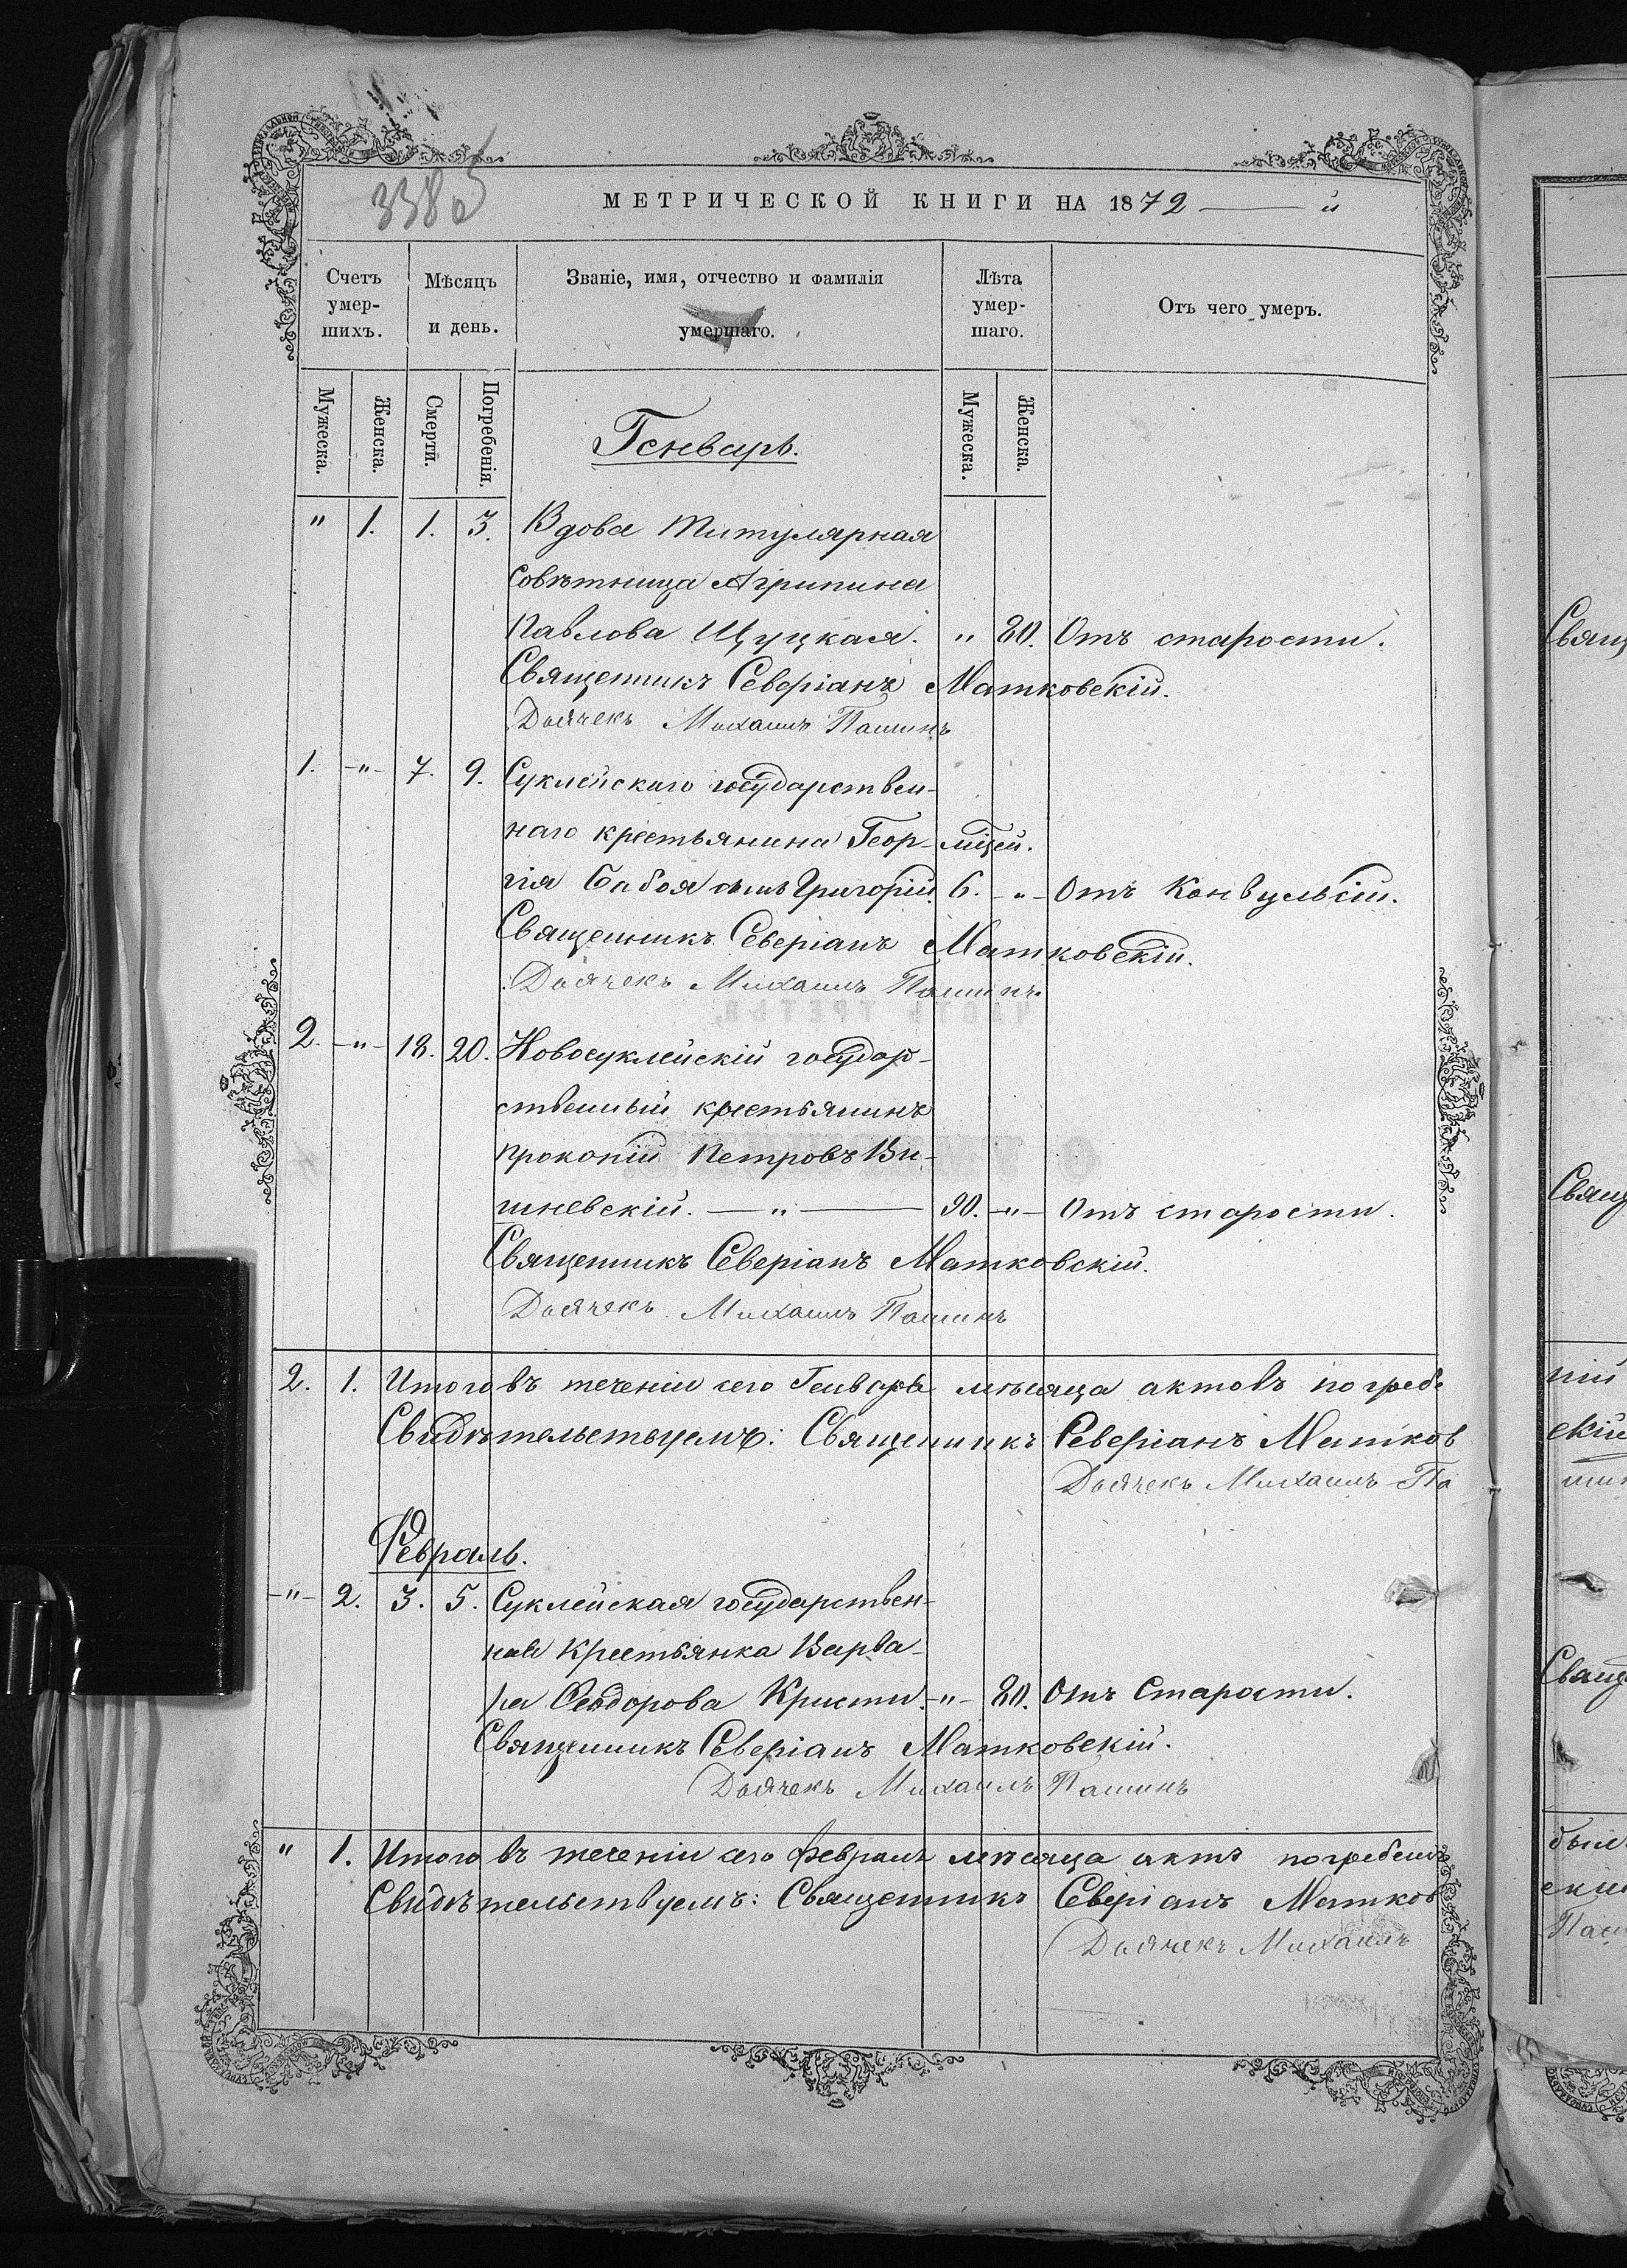 МЕТРИЧЕСКОЙ КНИГИ НА 1872 — й
Счетъ умер-шихъ.
Мѣсяцъ и день.
Званіе, имя, отчество и фамилія умершаго.
Лѣта умер-шаго.
Отъ чего умеръ.
Мужеска. Женска. Смерти. Погребенія. Мужеска. Женска.
Генварь.
" 1. 1. 3. Вдова Титулярная
совѣтница Агрипина
Павлова Щуцкая. " 80. Отъ старости.
Священникъ Северіанъ Матковскій.
Дьячекъ Михаилъ Пашинъ
1. -"- 7. 9. Суклейскаго государствен-
наго крестьянина Геор- мѣсяцей.
гія Бабоя сынъ Григорій. 6. -"- Отъ Конвульсіи.
Священникъ Северіанъ Матковскій.
Дьячекъ Михаилъ Пашинъ
2. -"- 18. 20. Новосуклейскій государ-
ственный крестьянинъ
Прокопій Петровъ Ви-
шневскій. — " — 90. -"- Отъ старости.
Священникъ Северіанъ Матковскій.
Дьячекъ Михаилъ Пашинъ
2. 1. Итого въ теченіи сего Генваря мѣсяца актовъ погребе
Свидѣтельствуемъ: Священникъ Северіанъ Матков
Дьячекъ Михаилъ Па
Февраль.
-"- 2. 3. 5. Суклейская государствен-
ная крестьянка Варва-
ра Феодорова Кристи. -"- 80. Отъ Старости.
Священникъ Северіанъ Матковскій.
Дьячекъ Михаилъ Пашинъ
" 1. Итого въ теченіи сего Февраля мѣсяца актъ погребен
Свидѣтельствуемъ: Священникъ Северіанъ Матков
Дьячекъ Михаилъ